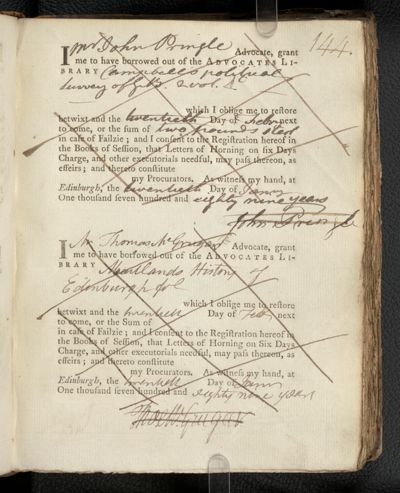 144.
I Mr John Pringle Advocate, grant
me to have borrowed out of the ADVOCATES LI-
BRARY Campbells political
Survey of gt B. 2 vols. 4º
which I oblige me to restore
betwixt and the twentieth Day of febr next
to come, or the sum of two pounds sterl
in case of Failzie; and I consent to the Registration hereof in
the Books of Session, that Letters of Horning on six Days
Charge, and other executorials needful, may pass thereon, as
effeirs; and thereto constitute
my Procurators. As witness my hand, at
Edinburgh, the twentieth Day of Janry
One thousand seven hundred and eighty nine years
John Pringle
I Mr Thomas McGrugar Advocate, grant
me to have borrowed out of the ADVOCATES LI-
BRARY Maitlands History of
Edinburgh fol
which I oblige me to restore
betwixt and the twentieth Day of Febr next
to come, or the Sum of
in case of Failzie; and I consent to the Registration hereof in
the Books of Session, that Letters of Horning on Six Days
Charge, and other executorials needful, may pass thereon, as
effeirs; and thereto constitute
my Procurators. As witness my hand, at
Edinburgh, the twentieth Day of Janry
One thousand seven hundred and eighty nine years
Thos McGrugar